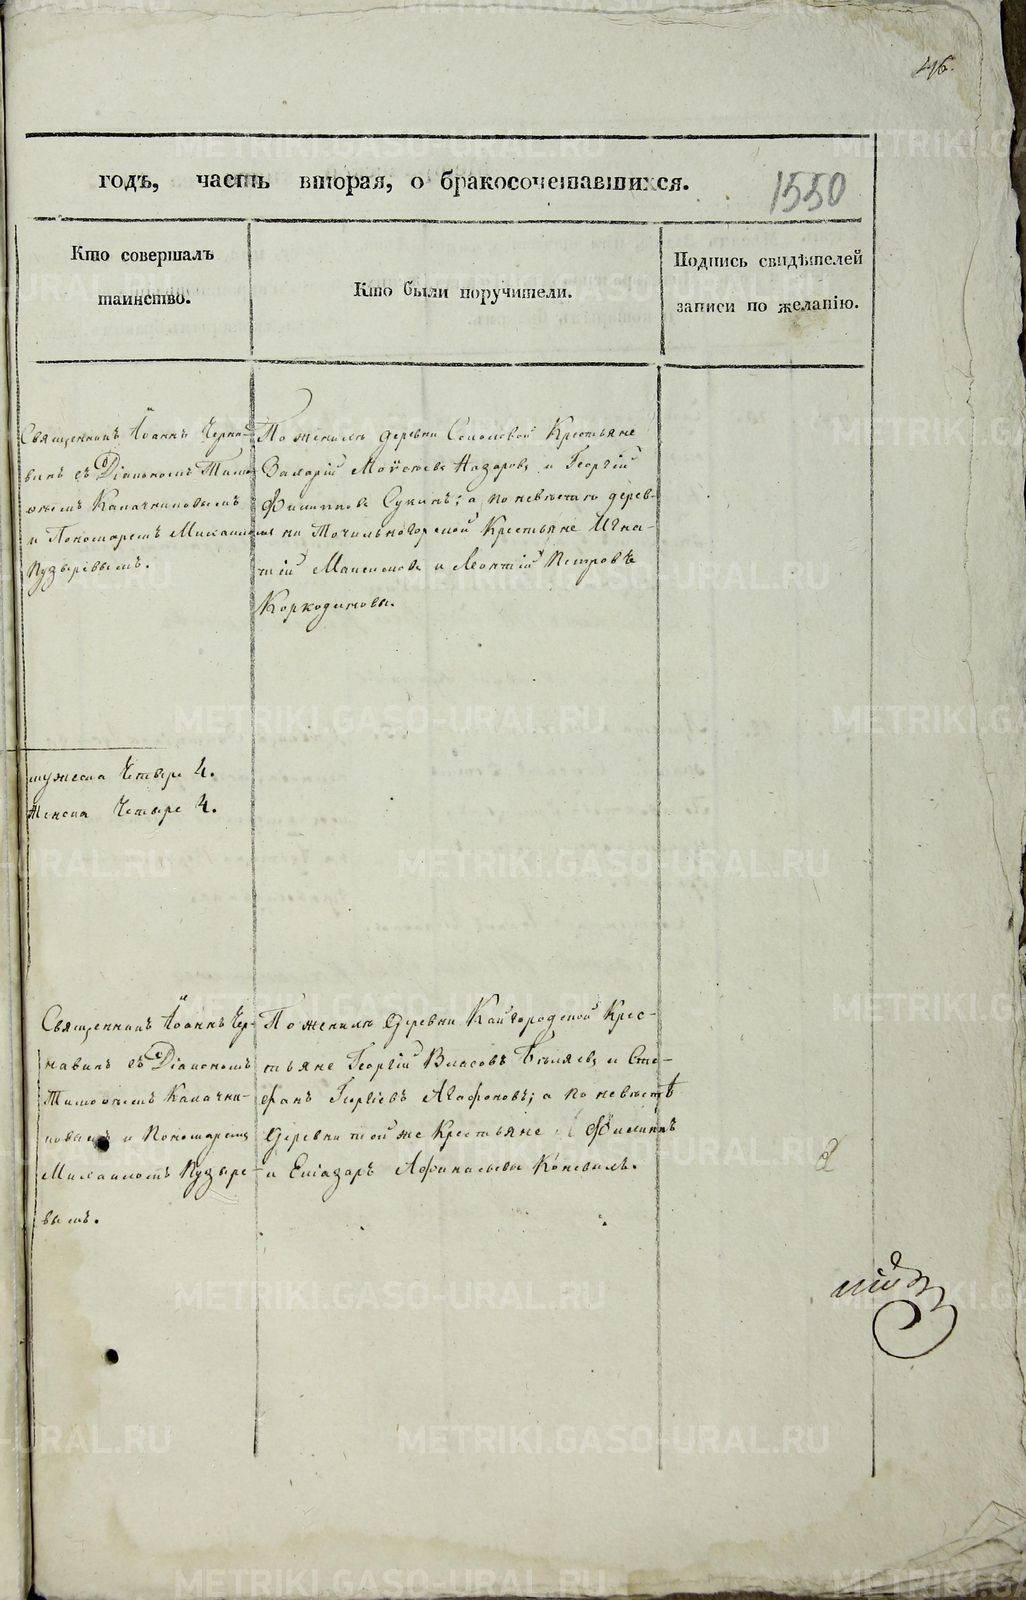 годъ, часть вторая, о бракосочетавшихся.
1550
Кто совершалъ
таинство.
Кто были поручители.
Подпись свидѣтелей
записи по желанію.
Священникъ Іоаннъ Черна-
винъ съ Діакономъ Тимо-
ѳеемъ Калачниковымъ
и Пономаремъ Михаиломъ
Пузыревымъ.
По женихѣ деревни Соколовой Крестьяне
Захарій Моѵсеевъ Назаровъ и Георгій
Филипповъ Сукинъ; а по невѣстѣ дерев-
ни Точильногорской Крестьяне Игна-
тій Максимовъ и Леонтій Петровъ
Коркодиновы.
мужеска Четыре 4.
Женска Четыре 4.
Священникъ Іоаннъ Чер-
навинъ съ Діакономъ
Тимоѳеемъ Калачни-
ковымъ и Пономаремъ
Михаиломъ Пузыре-
вымъ.
По женихѣ Деревни Кайгородской Крес-
тьяне Георгій Власовъ Бѣляевъ и Сте-
фанъ Георгіевъ Агафоновъ; а по невѣстѣ
Деревни той же Крестьяне Филиппъ
и Еліазаръ Афанасьевы Коневыхъ.
METRIKI.GASO-URAL.RU